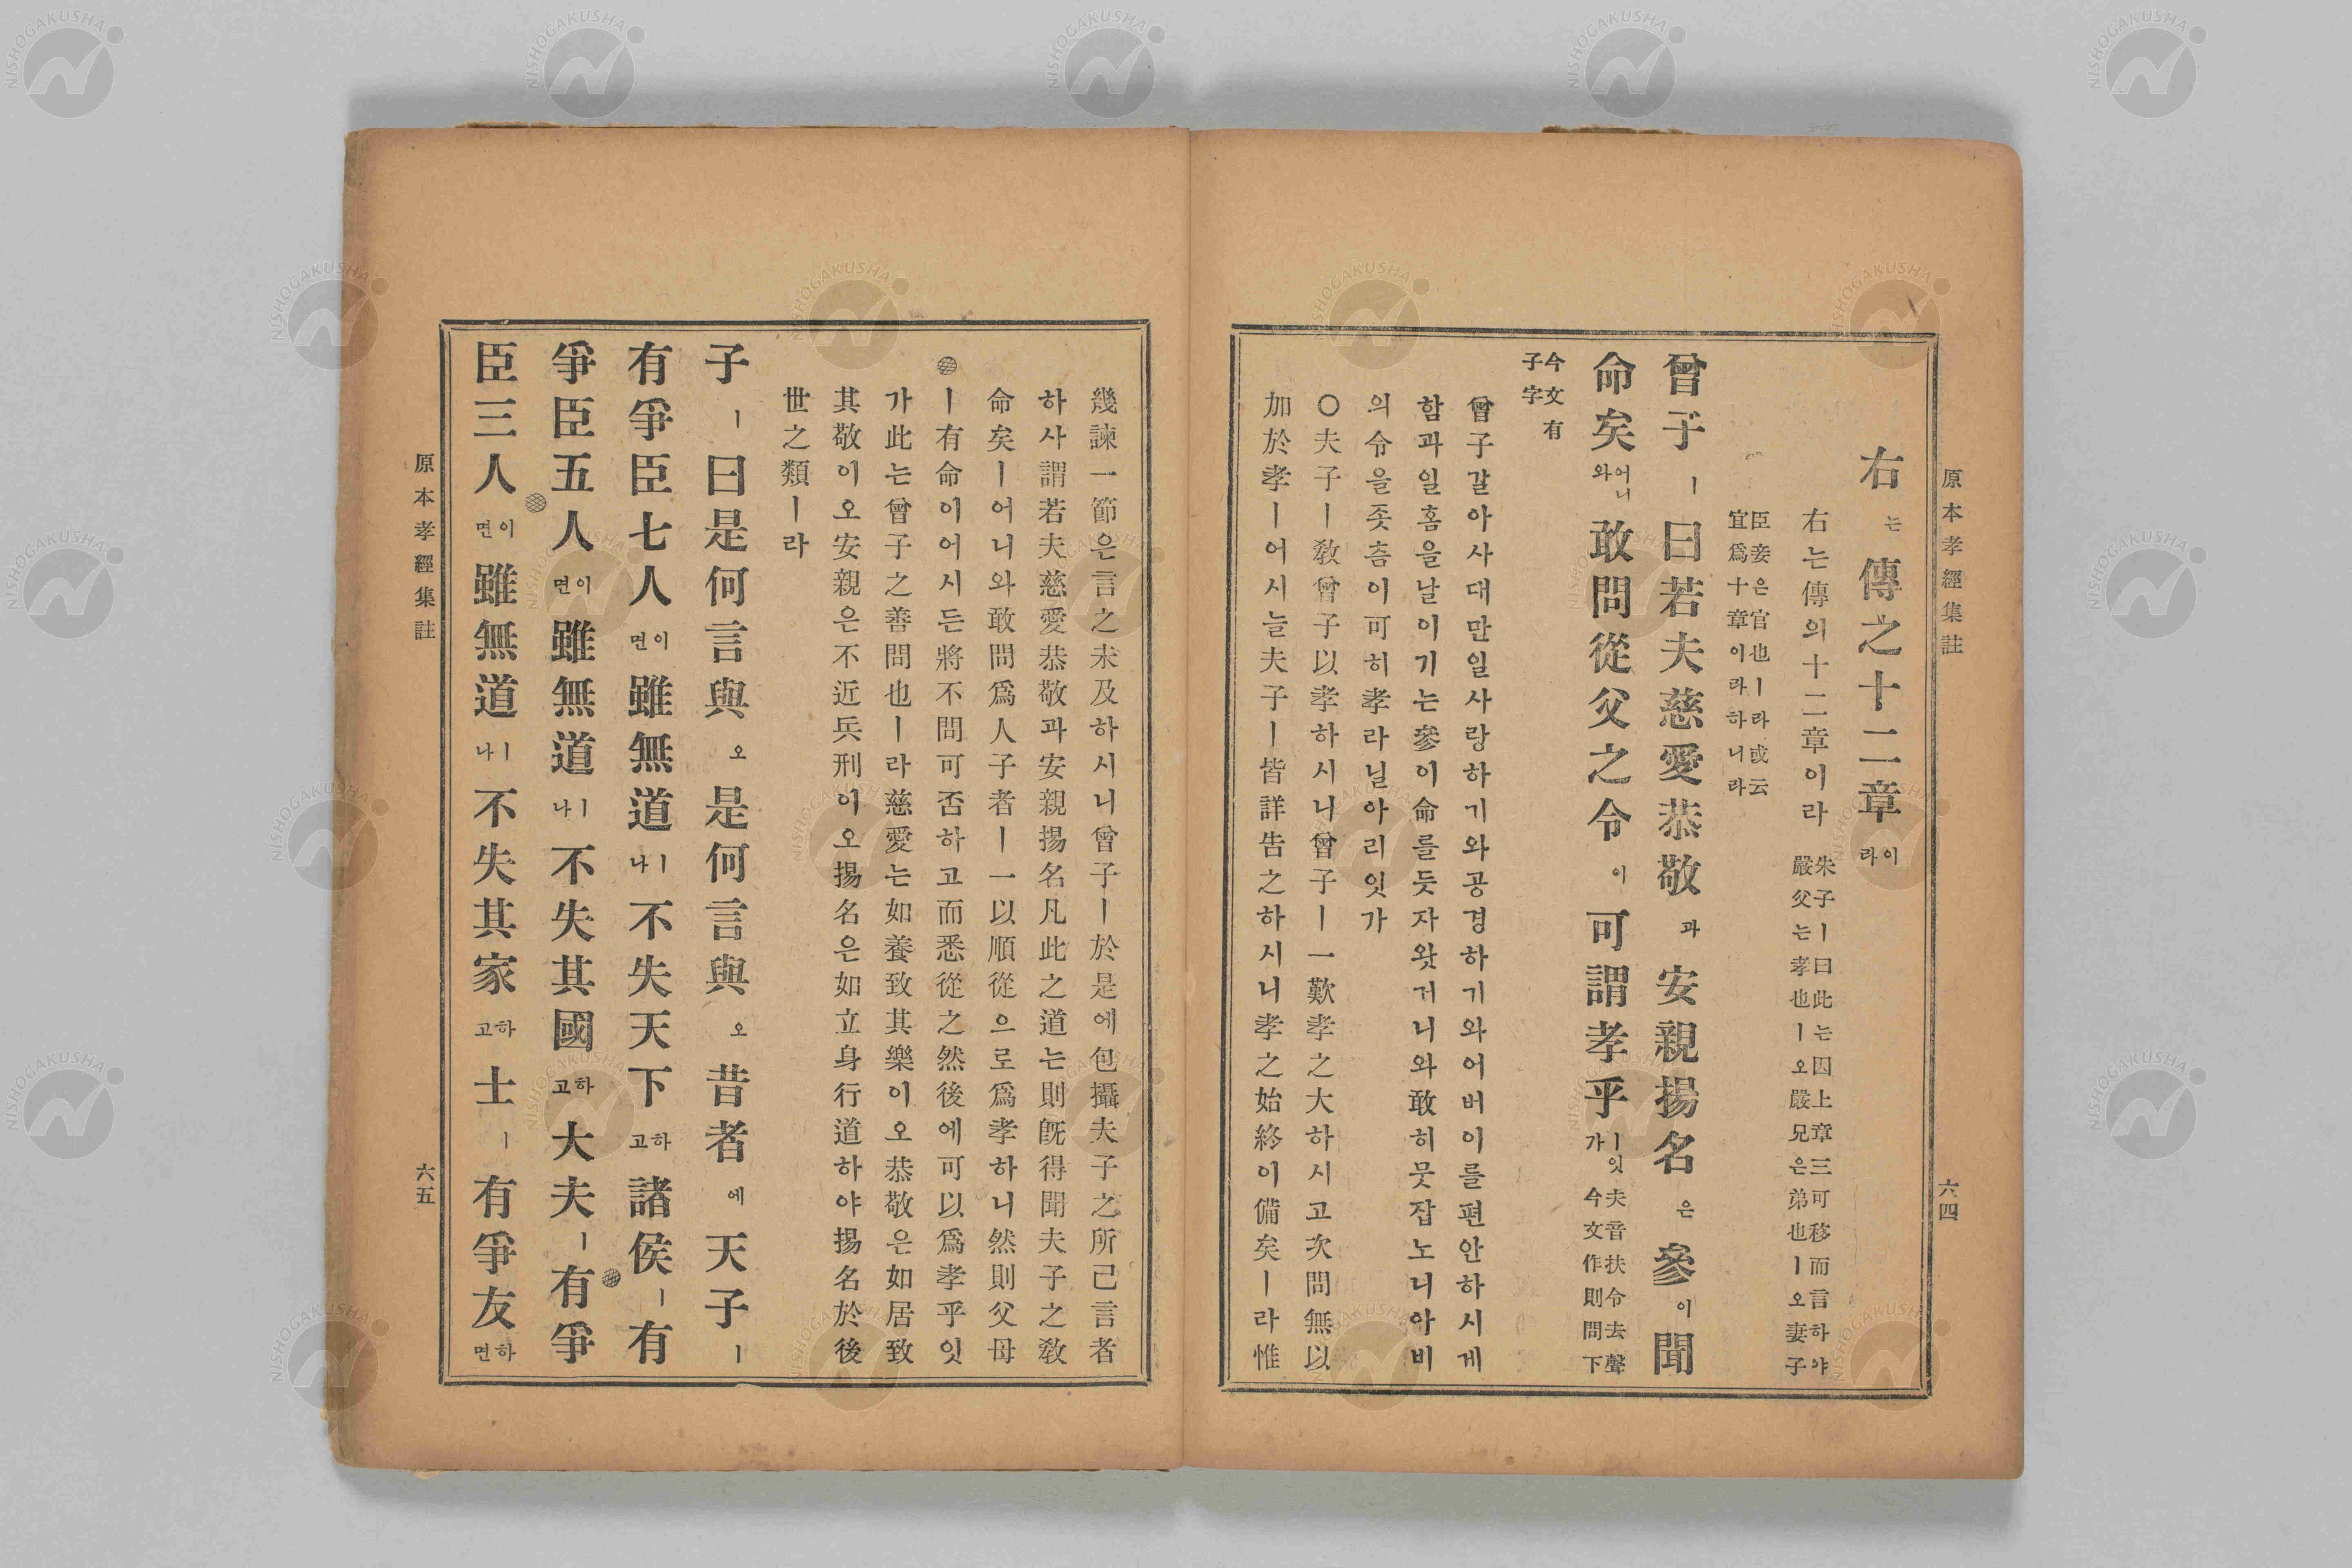 原本孝經集註
六四
右는傳之十二章이라
右는傳의十二章이라
朱子ㅣ曰此는因上章三可移而言하야
嚴父는孝也ㅣ오嚴兄은弟也ㅣ오妻子
臣妾은官也ㅣ라或云
宜爲十章이라하니라
曾子ㅣ曰若夫慈愛恭敬과安親揚名은參이聞
命矣어니와敢問從父之令이可謂孝乎ㅣ잇가
夫音扶令去聲
今文作則問下
今文有
子字
曾子갈아사대만일사랑하기와공경하기와어버이를편안하시게
함과일홈을날이기는參이命를듯자왓거니와敢히뭇잡노니아비
의令을좃츰이可히孝라닐아리잇가
〇夫子ㅣ敎曾子以孝하시니曾子ㅣ一歎孝之大하시고次問無以
加於孝ㅣ어시늘夫子ㅣ皆詳告之하시니孝之始終이備矣ㅣ라惟
幾諫一節은言之未及하시니曾子ㅣ於是에包攝夫子之所己言者
하사謂若夫慈愛恭敬과安親揚名凡此之道는則旣得聞夫子之敎
命矣ㅣ어니와敢問爲人子者ㅣ一以順從으로爲孝하니然則父母
ㅣ有命이어시든將不問可否하고而悉從之然後에可以爲孝乎잇
가此는曾子之善問也ㅣ라慈愛는如養致其樂이오恭敬은如居致
其敬이오安親은不近兵刑이오揚名은如立身行道하야揚名於後
世之類ㅣ라
子ㅣ曰是何言與오是何言與오昔者에天子ㅣ
有爭臣七人이면雖無道ㅣ나不失天下하고諸侯ㅣ有
爭臣五人이면雖無道ㅣ나不失其國하고大夫ㅣ有爭
臣三人이면雖無道ㅣ나不失其家하고士ㅣ有爭友하면
原本孝經集註
六五
NISHOGAKUSHA